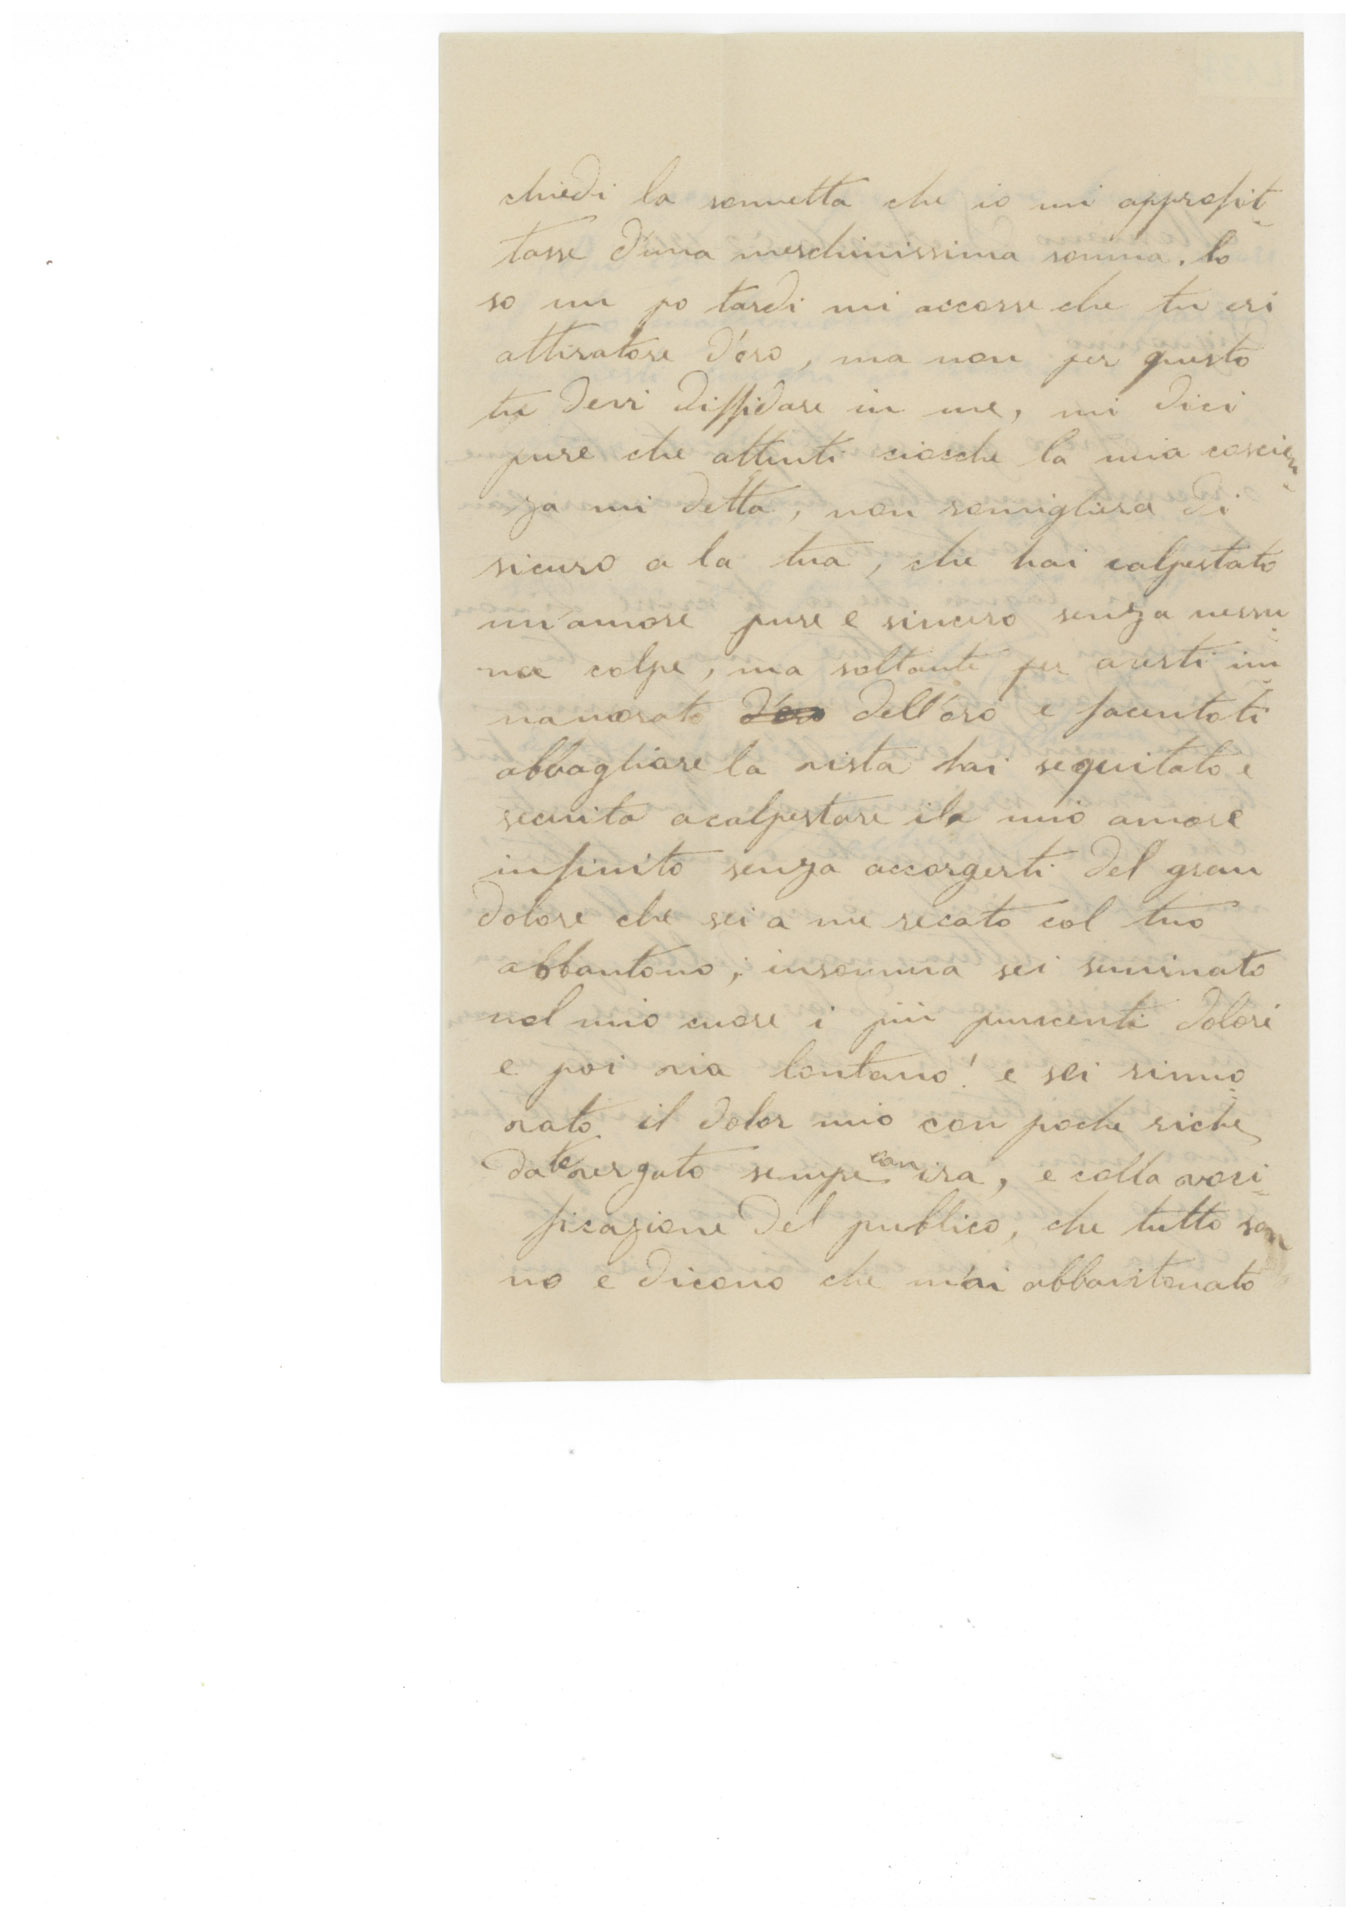 chiedi la sommetta che io mi approfit-
tasse d'una meschinissima somma. Lo
so un po tardi mi accorse che tu eri
attiratore d'oro, ma non per questo
tu devi diffidare in me, mi dici
pure che attinti ciocche la mia coscien-
za mi detta, non somigliera di
sicuro a la tua, che hai calpestato
un'amore pure e sincero senza nessu
na colpe, ma soltanto per averti in-
namorato d'oro dell'oro e facentoti
abbagliare la vista hai sequitato e
secuita a calpestare il mio amore
infinito senza accorgerti del gran
dolore che sei a me recato col tuo
abbantono; insomma sei seminato
nel mio cuore i più puncenti dolori
e poi via lontano! e sei rinno
vato il dolor mio con poche riche
date vergato sempe con ira, e colla voci-
ficazione del publico, che tutto san
no e dicono che m'ai abbantonato